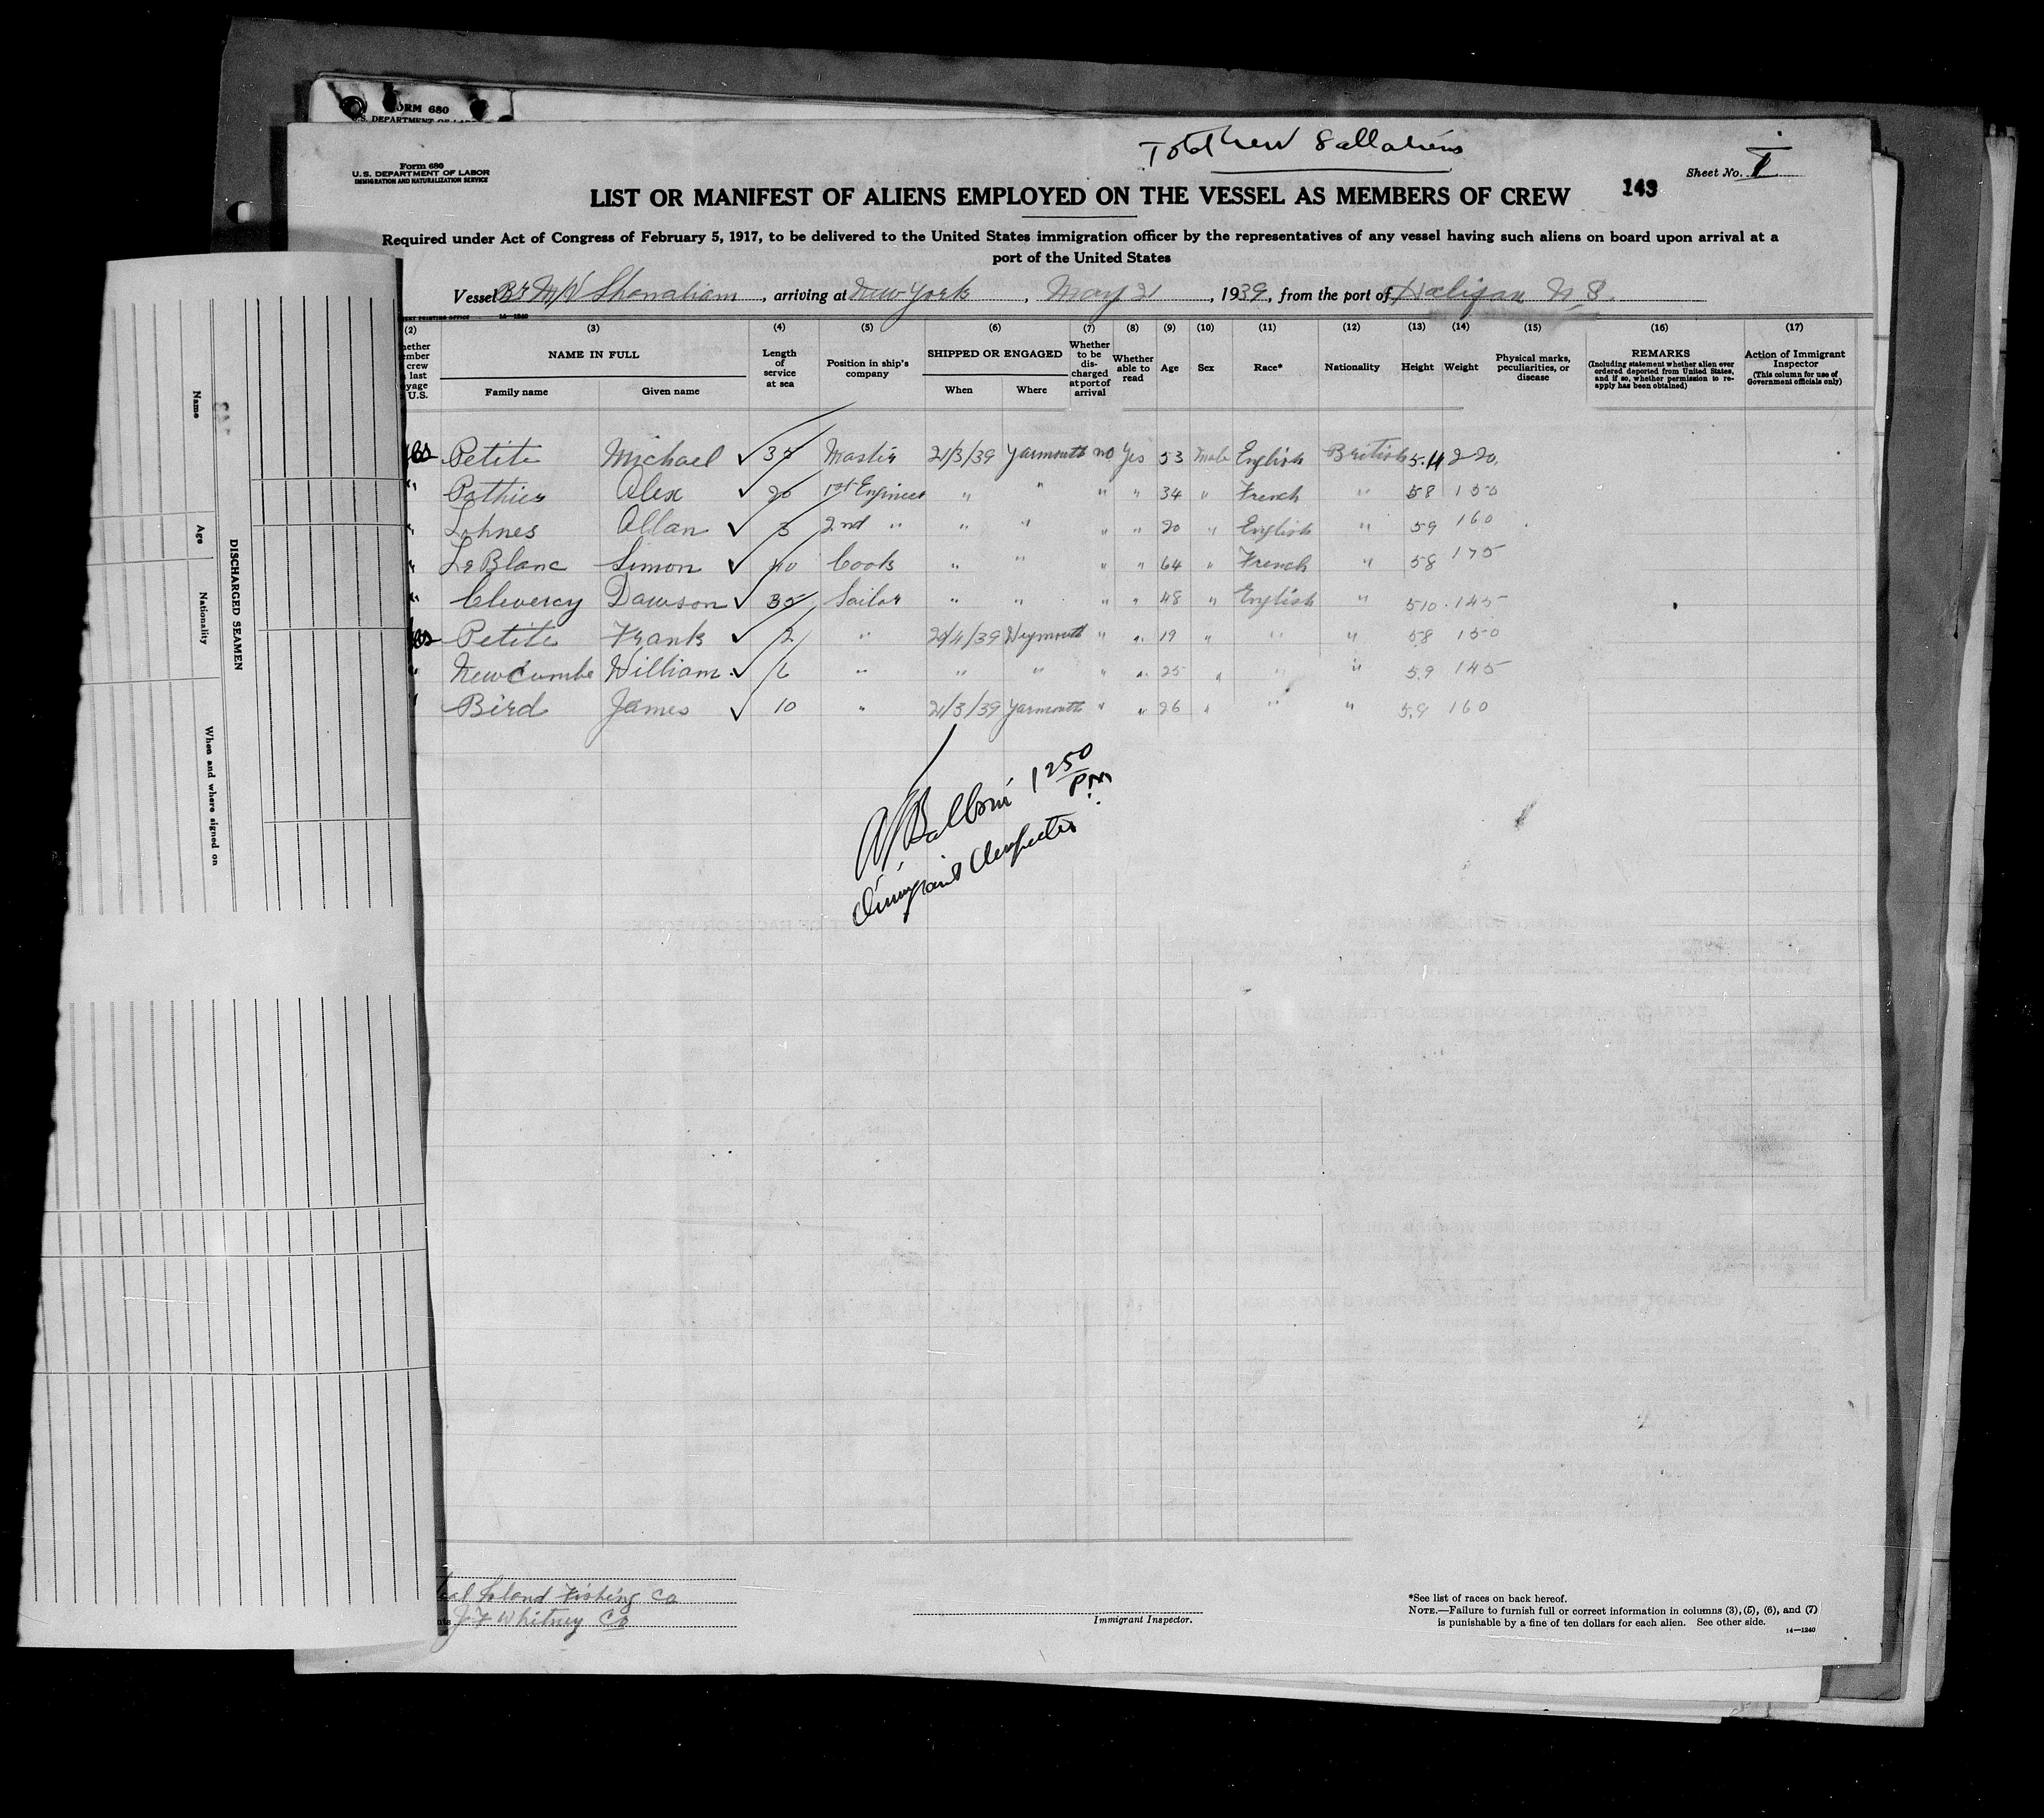 FORM 680
U.S. DEPARTMENT OF LABOR
Form 680
U.S. DEPARTMENT OF LABOR
IMMIGRATION AND NATURALIZATION SERVICE
Total Crew 8 all aliens
Sheet No. 1
LIST OR MANIFEST OF ALIENS EMPLOYED ON THE VESSEL AS MEMBERS OF CREW 143
Required under Act of Congress of February 5, 1917, to be delivered to the United States immigration officer by the representatives of any vessel having such aliens on board upon arrival at a
port of the United States
Vessel Br M/V Shanaliam, arriving at New York, May 21, 1939, from the port of Halifax N.S.
(2) (3) (4) (5) (6) (7) (8) (9) (10) (11) (12) (13) (14) (15) (16) (17)
NAME IN FULL
Family name Given name
Length of service at sea
Position in ship's company
SHIPPED OR ENGAGED
When Where
Whether to be discharged at port of arrival
Whether able to read
Age Sex Race* Nationality Height Weight
Physical marks, peculiarities, or disease
REMARKS
(Including statement whether alien ever ordered deported from United States, and if so, whether permission to reapply has been obtained)
Action of Immigrant Inspector
(This column for use of Government officials only)
Petite Michael ✓ 35 Master 21/3/39 Yarmouth no Yes 53 Male English British 5.11 220.
" Pothier Alex ✓ 20 1st Engineer " " " " 34 " French " 58 150
" Lohnes Allan ✓ 3 2nd " " " " " 20 " English " 59 160
" LeBlanc Simon ✓ 40 Cook " " " " 64 " French " 58 175
" Clevercy Dawson ✓ 35 Sailor " " " " 48 " English " 510 145
Petite Frank ✓ 2 " 29/4/39 Weymouth " " 19 " " " 58 150
" Newcumbe William ✓ 6 " " " " " 25 " " " 5.9 145
" Bird James ✓ 10 " 21/3/39 Yarmouth " " 26 " " " 5.9 160
Balboni 12 50 PM
Immigrant Inspector
DISCHARGED SEAMEN
Name
Age
Nationality
When and where signed on
Island Fishing Co
J F Whitney Co
Immigrant Inspector.
*See list of races on back hereof.
NOTE.—Failure to furnish full or correct information in columns (3), (5), (6), and (7)
is punishable by a fine of ten dollars for each alien. See other side.
14—1240